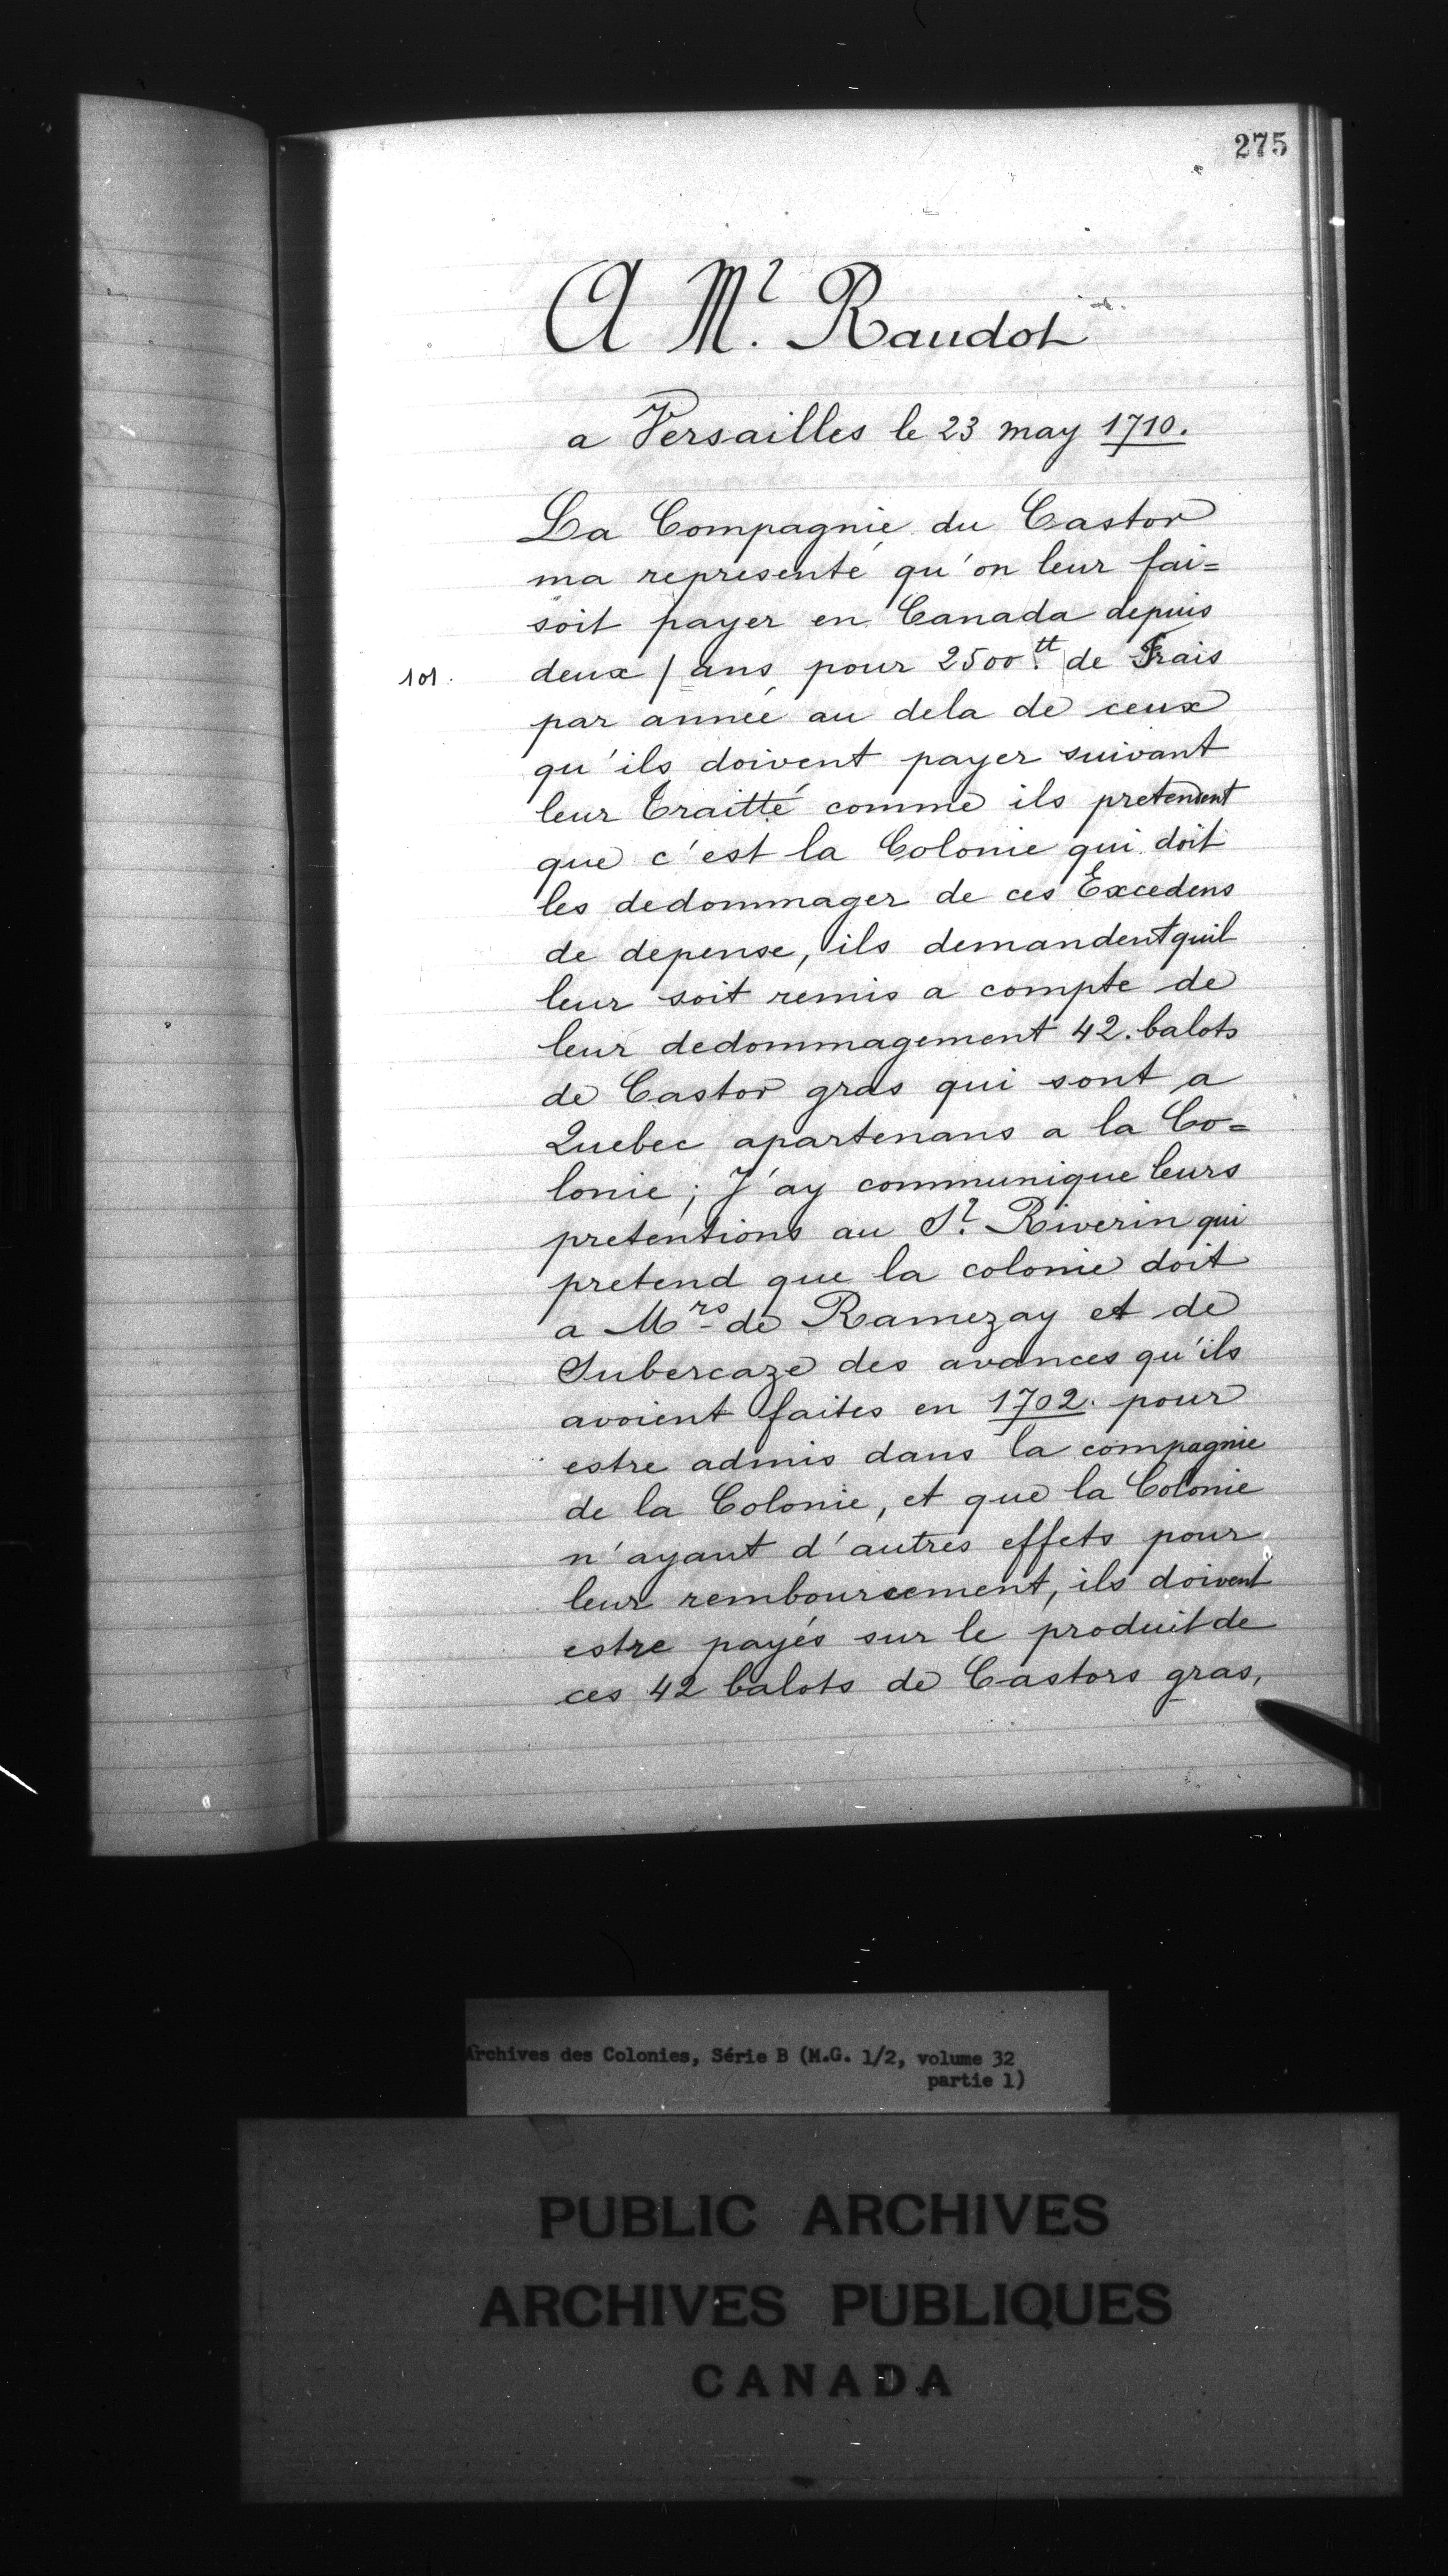 275
A Mr. Raudot
a Versailles le 23 may 1710.
La Compagnie du Castor
ma representé qu'on leur fai=
soit payer en Canada depuis
101. deux / ans pour 2500.tt de Frais
par année au dela de ceux
qu'ils doivent payer suivant
leur Traitté comme ils pretendent
que c'est la Colonie qui doit
les dedommager de ces Excedens
de depense, ils demandent quil
leur soit remis a compte de
leur dedommagement 42. balots
de Castor gras qui sont a
Quebec apartenans a la Co=
lonie; J'ay communique leurs
pretentions au Sr. Riverin qui
pretend que la colonie doit
a Mrs de Ramezay et de
Subercaze des avances qu'ils
avoient faites en 1702. pour
estre admis dans la compagnie
de la Colonie, et que la Colonie
n'ayant d'autres effets pour
leur rembourcement, ils doivent
estre payés sur le produit de
ces 42 balots de Castors gras,
Archives des Colonies, Série B (M.G. 1/2, volume 32
partie 1)
PUBLIC ARCHIVES
ARCHIVES PUBLIQUES
CANADA